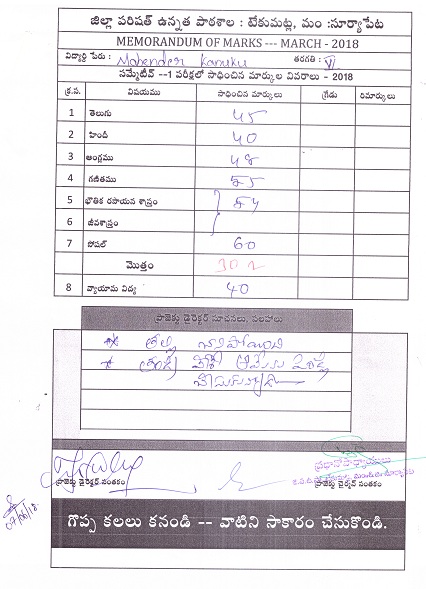 జిల్లా పరిషత్ ఉన్నత పాఠశాల : టేకుమట్ల, మం :సూర్యాపేట
MEMORANDUM OF MARKS --- MARCH - 2018
విద్యార్థి పేరు : Mahender Kanuku తరగతి : VI
సమ్మేటీవ్ --1 పరీక్షలో సాధించిన మార్కుల వివరాలు - 2018
క్ర.స. విషయము సాధించిన మార్కులు గ్రేడు రిమార్కులు
1 తెలుగు 45
2 హిందీ 40
3 ఆంగ్లము 48
4 గణితము 55
5 భౌతిక రసాయన శాస్త్రం 54
6 జీవశాస్త్రం
7 సోషల్ 60
మొత్తం 302
8 వ్యాయామ విద్య 40
ప్రాజెక్టు డైరెక్టర్ సూచనలు, సలహాలు
* తల్లి
* తండ్రి
ప్రధానోపాధ్యాయులు
ప్రాజెక్టు డైరెక్టర్ సంతకం ప్రాజెక్టు చైర్మన్ సంతకం
గొప్ప కలలు కనండి -- వాటిని సాకారం చేసుకోండి.